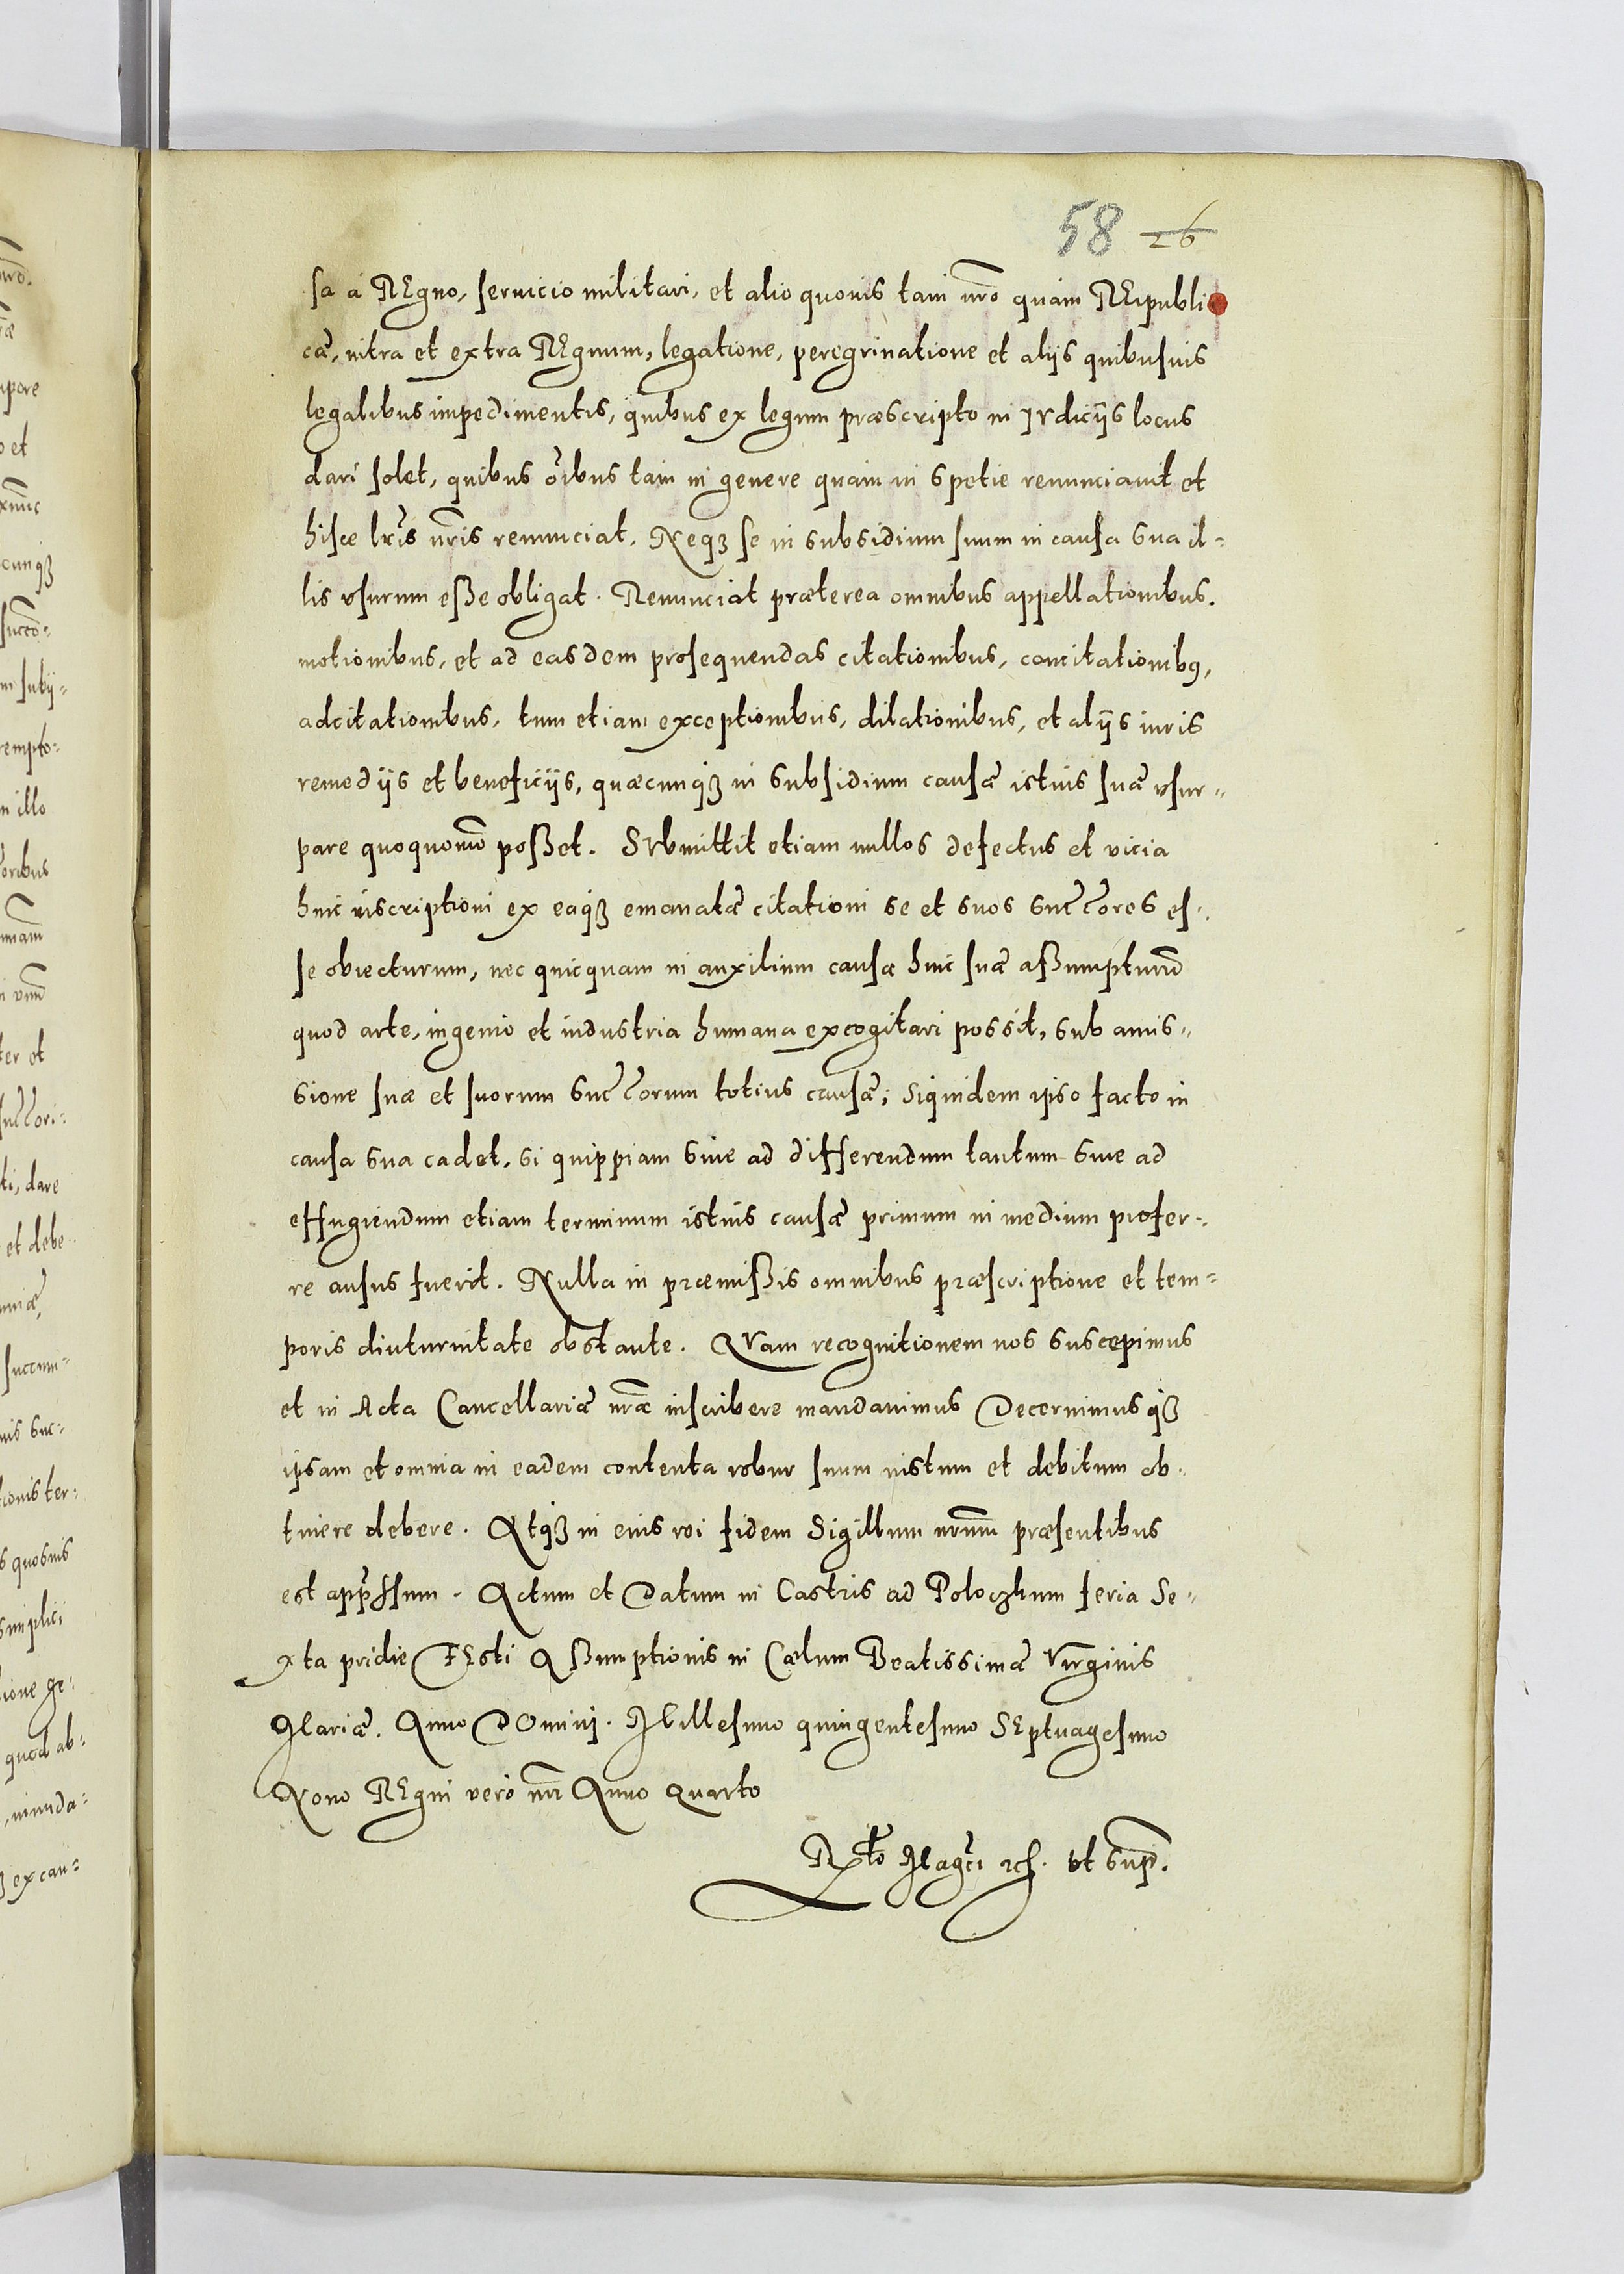 58 26
sa a REgno, seruicio militari, et alio quouis tam nrõ quam REipubli
cæ, intra et extra REgnum, legatione, peregrinatione et alijs quibusuis
legalibus impedimentis, quibus ex legum præscripto in Judicijs locus
dari solet, quibus oĩbus tam in genere quam in spetie renunciauit et
hisce lrĩs nrĩs renunciat. Neqʒ se in subsidium suum in causa sua il-
lis vsurum eße obligat. Renunciat præterea omnibus appellationibus.
motionibus, et ad easdem prosequendas citationibus, concitationibꝰ,
adcitationibus, tum etiam exceptionibus, dilationibus, et alijs iuris
remedijs et beneficijs, quæcunqʒ in subsidium causæ istius suæ vsur-
pare quoquomõ poßet. SVbmittit etiam nullos defectus et vicia
huic inscriptioni ex eaqʒ emanatæ citationi se et suos succ̃ores es-
se obiecturum, nec quicquam in auxilium causæ huic suæ aßumpturũ
quod arte, ingenio et industria humana excogitari possit, sub amis-
sione suæ et suorum succ̃orum totius causæ; siquidem ipso facto in
causa sua cadet, si quippiam siue ad differendum tantum siue ad
effugiendum etiam terminum istius causæ primum in medium profer-
re ausus fuerit. Nulla in præmißis omnibus præscriptione et tem-
poris diuturnitate obstante. QVam recognitionem nos suscepimus
et in Acta Cancellariæ nr̃æ inscribere mandauimus Decernimusqʒ
ipsam et omnia in eadem contenta robur suum iustum et debitum ob-
tinere debere. Atqʒ in eius rei fidem Sigillum nrũm præsentibus
est app̃ssum. Actum et Datum in Castris ad Poloczkum feria Se-
xta pridie FEsti Aßumptionis in Cælum Beatissimæ Virginis
Mariæ. Anno DOmini. Millesimo quingentesimo SEptuagesimo
Nono REgni vero nrĩ Anno Quarto
Rl̃to Mag̃ci ut sup̃.